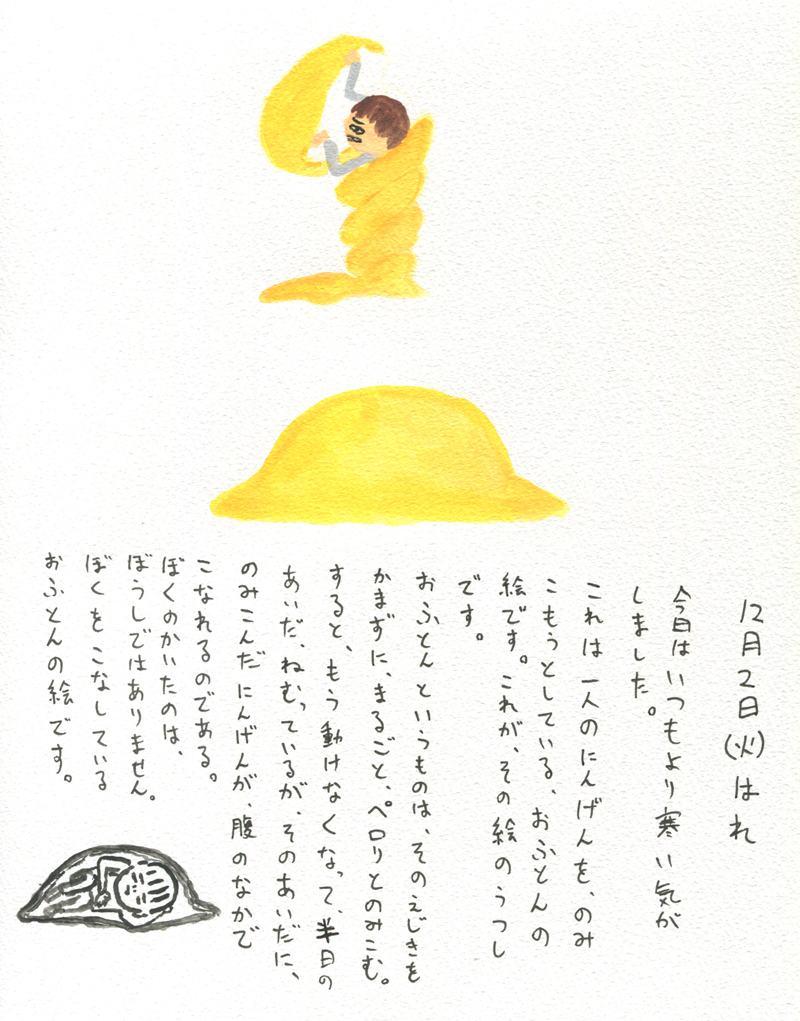 12月2日(火)はれ
今日はいつもより寒い気が
しました。
これは一人のにんげんを、のみ
こもうとしている、おふとんの
絵です。これが、その絵のうつし
です。
おふとんというものは、そのえじきを
かまずに、まるごと、ペロリとのみこむ。
すると、もう動けなくなって、半日の
あいだ、ねむっているが、そのあいだに、
のみこんだにんげんが、腹のなかで
こなれるのである。
ぼくのかいたのは、
ぼうしではありません。
ぼくをこなしている
おふとんの絵です。